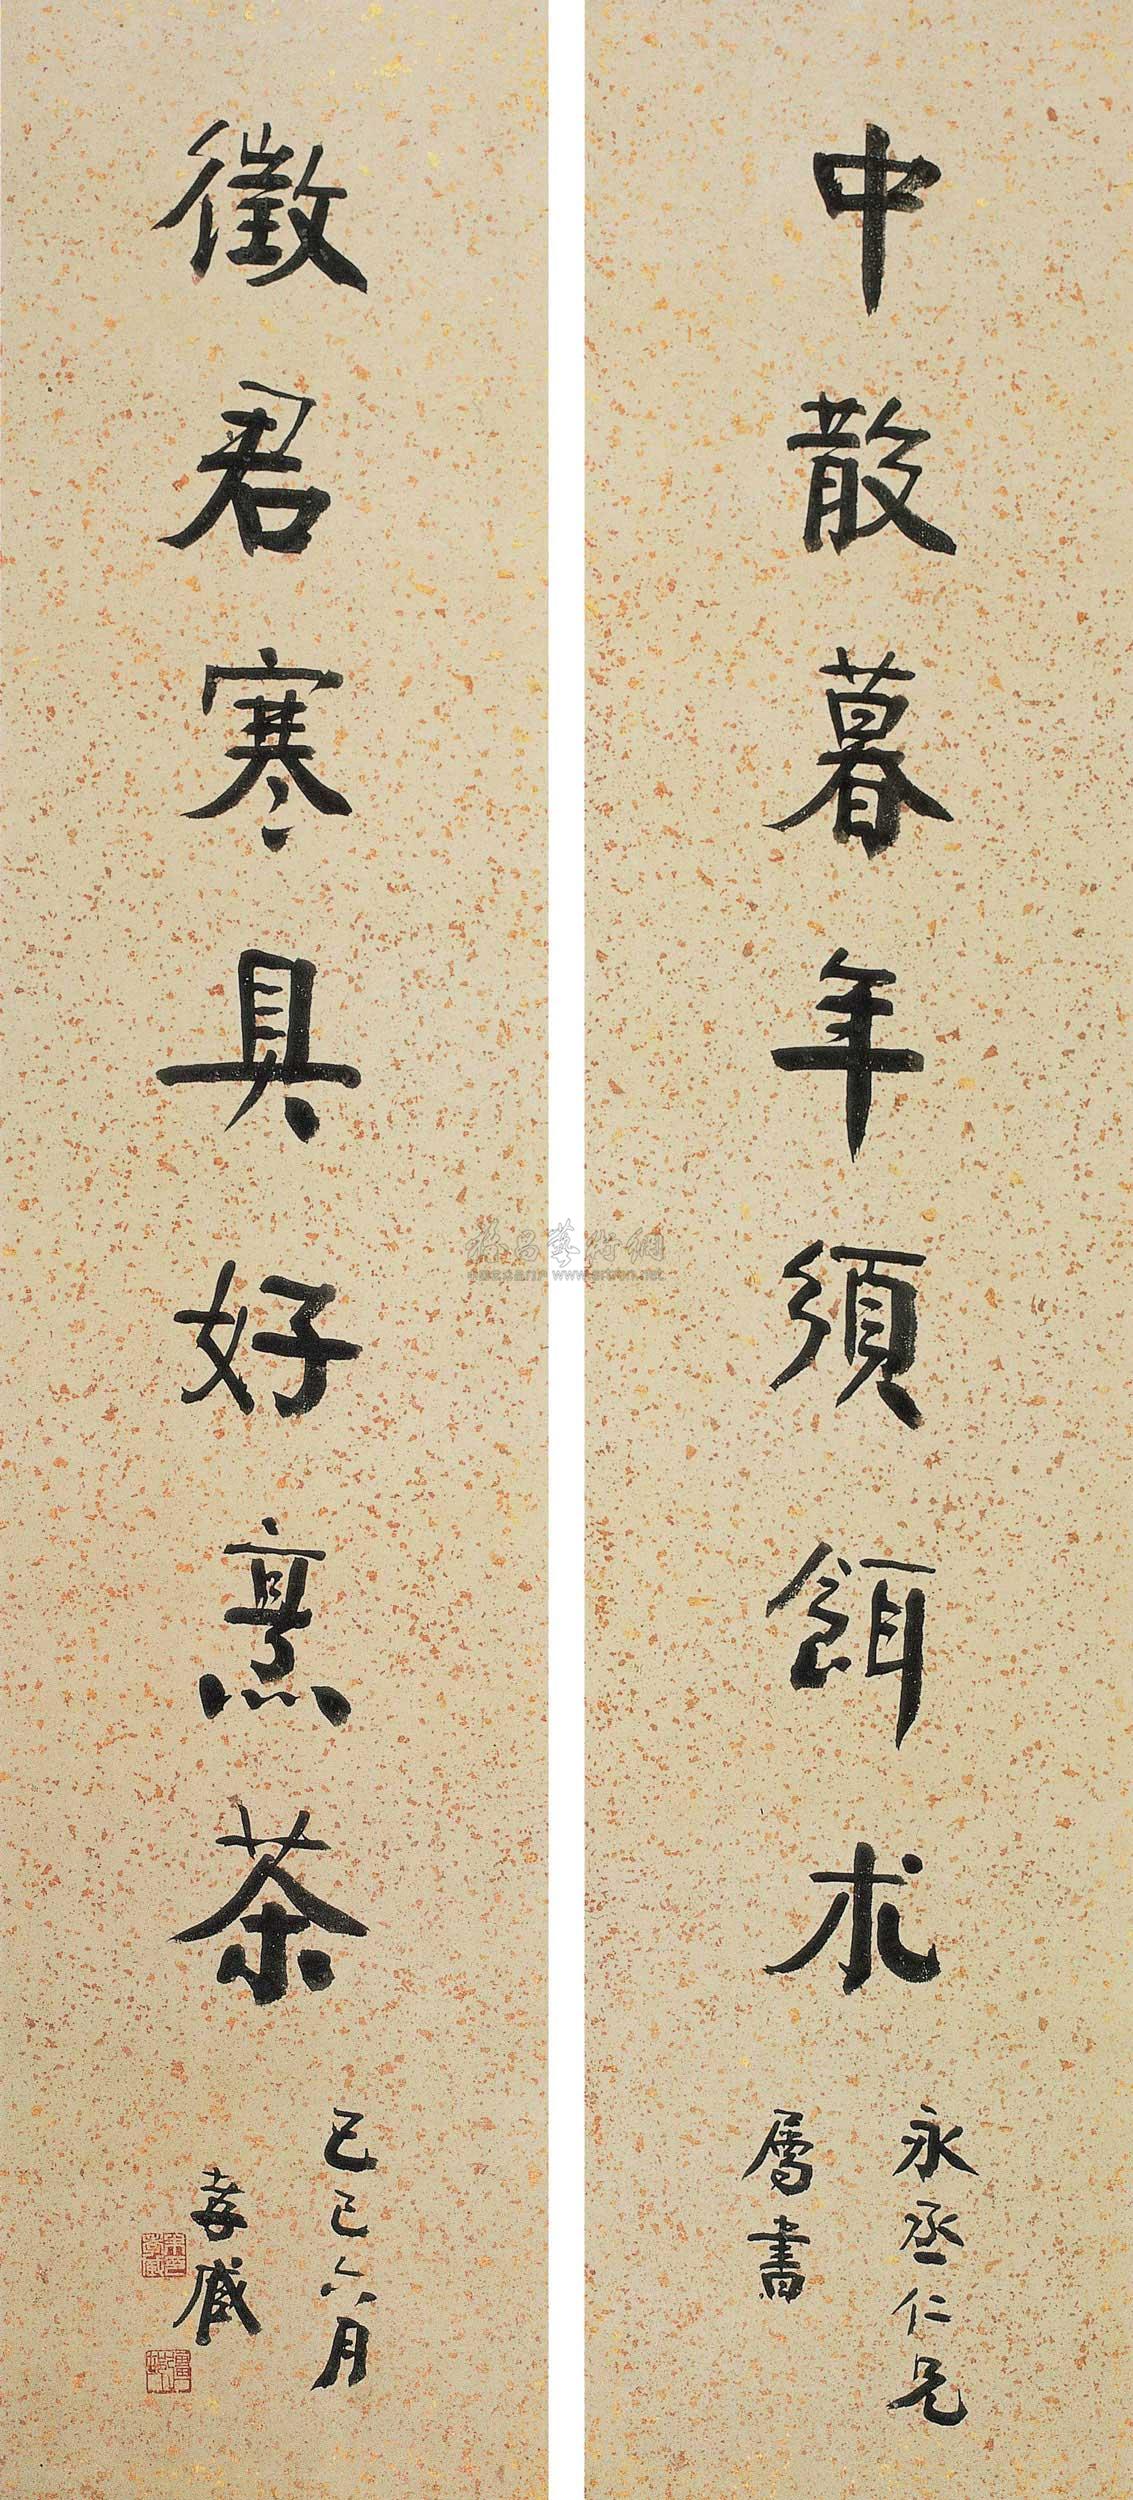 中散暮年須餌朮
永丞仁兄
屬書
徵君寒具好烹茶
己巳六月
孝臧
www.artron.net